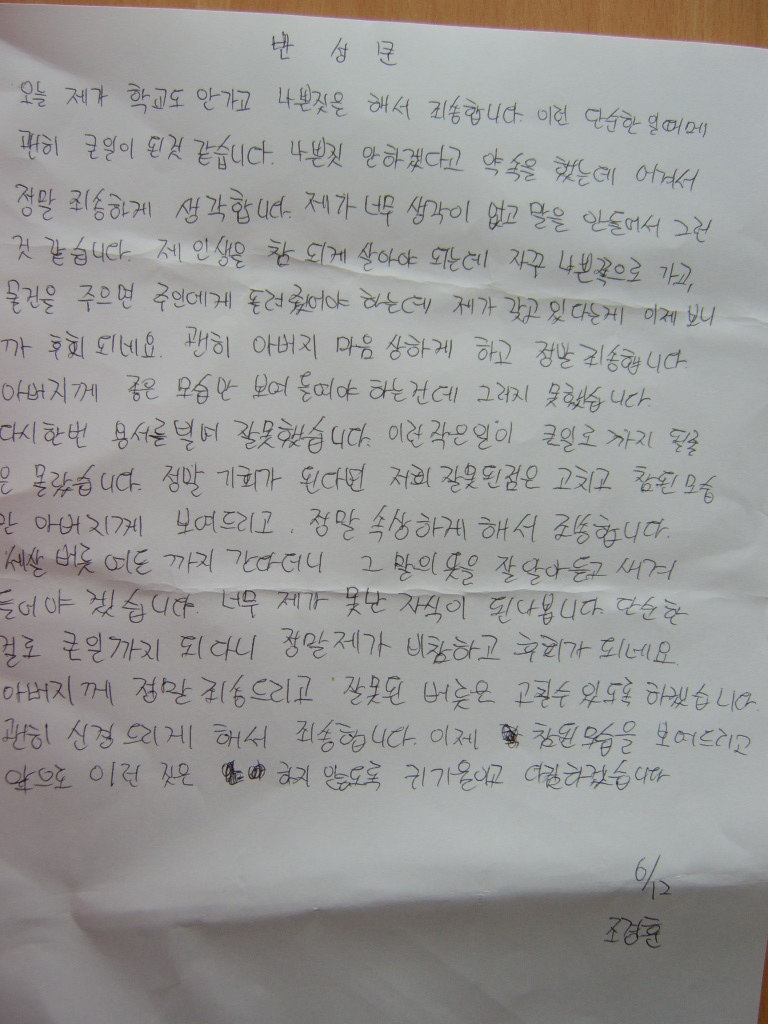 반 성 문
오늘 제가 학교도 안가고 나쁜짓은 해서 죄송합니다. 이런 단순한 일때메
괜히 큰일이 된것 같습니다. 나쁜짓 안하겠다고 약속을 했는데 어겨서
정말 죄송하게 생각합니다. 제가 너무 생각이 없고 말을 안들어서 그런
것 같습니다. 제 인생을 참 되게 살아야 되는데 자꾸 나쁜쪽으로 가고,
물건을 주으면 주인에게 돌려줬어야 하는데 제가 갖고 있다는게 이제 보니
까 후회 되네요. 괜히 아버지 마음 상하게 하고 정말 죄송합니다.
아버지께 좋은 모습만 보여 들여야 하는건데 그러지 못했습니다.
다시한번 용서를 빌며 잘못했습니다. 이런작은일이 큰일로 까지 될줄
은 몰랐습니다. 정말 기회가 된다면 저희 잘못된점은 고치고 참된모습
만 아버지께 보여드리고. 정말 속상하게 해서 죄송합니다.
세살 버릇 여든 까지 간다더니 그 말의 뜻을 잘 알아 듣고 새겨
들어야 겠습니다. 너무 제가 못난 자식이 된나봅니다 단순한
걸로 큰일까지 되다니 정말제가 비참하고 후회가 되네요.
아버지께 정말 죄송드리고 잘못된 버릇은 고칠수 있도록 하겠습니다.
괜히 신경 드리게 해서 죄송합니다. 이제 참된모습을 보여드리고
앞으로 이런 짓은 하지 않도록 귀기울이고 다짐하겠습니다
6/12